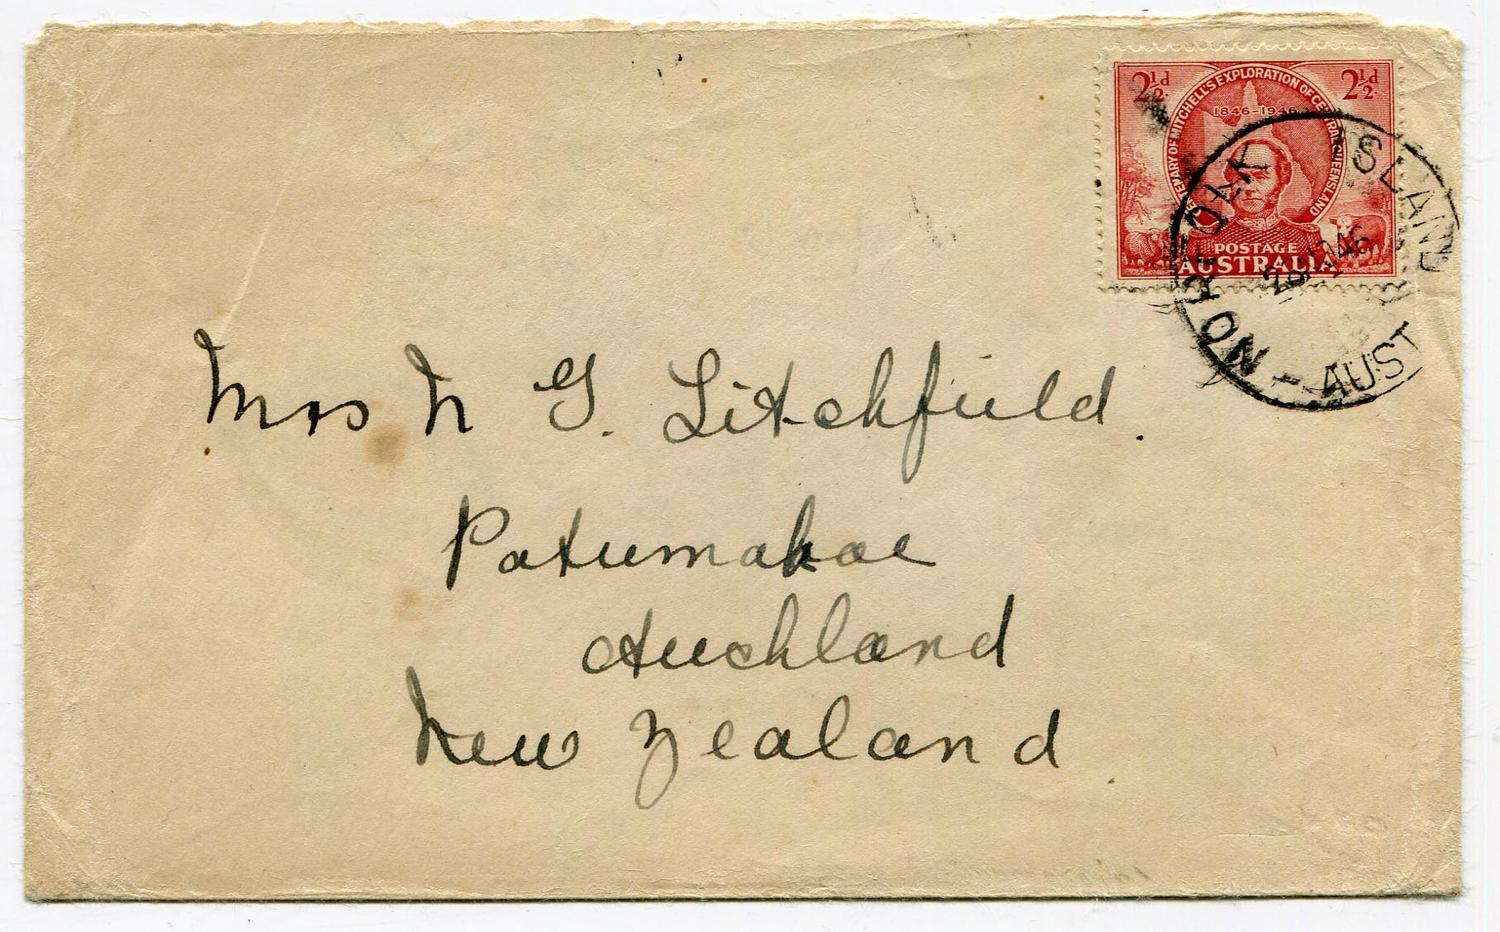 2½d 2½d
CENTENARY OF MITCHELL'S EXPLORATION OF CENTRAL QUEENSLAND
1846-1946
POSTAGE
AUSTRALIA
NORFOLK ISLAND
1946
- AUST
Mrs N G. Litchfield.
Patumahoe
Auckland
New Zealand.